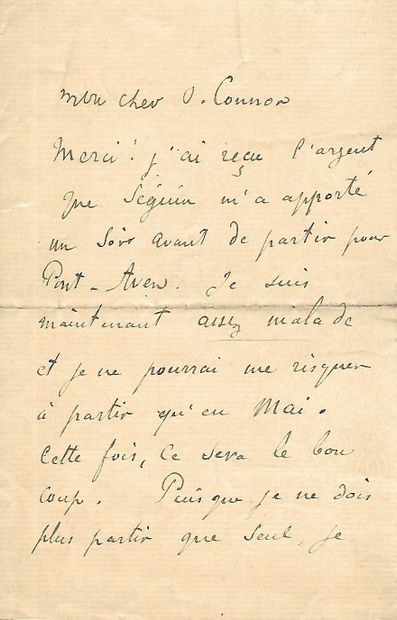 mon cher O. Connor
Merci! j'ai reçu l'argent
que Séguin m'a apporté
un soir avant de partir pour
Pont-Aven. Je suis
maintenant assez malade
et je ne pourrai me risquer
à partir qu'en Mai.
Cette fois, ce sera le bon
coup. Puisque je ne dois
plus partir que seul, je